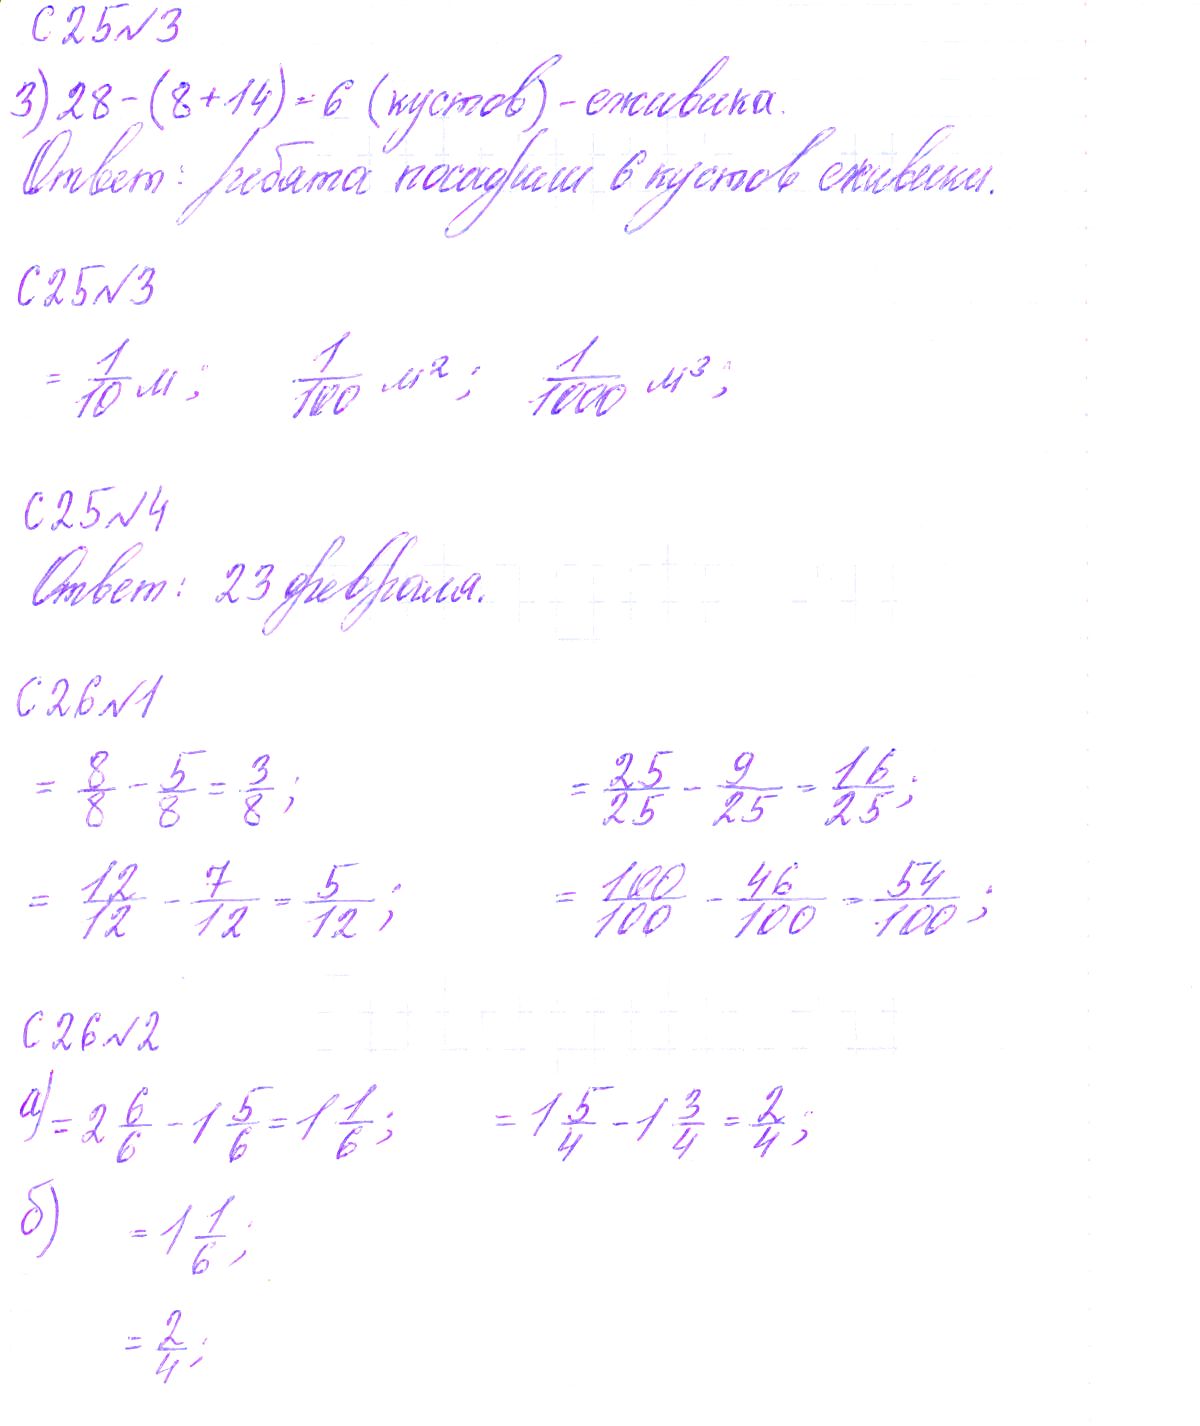 С25№3
3) 28-(8+14)=6 (кустов) - ежевика.
Ответ: ребята посадили 6 кустов ежевики.
С25№3
= 1/10 м; 1/100 м²; 1/1000 м³;
С25№4
Ответ: 23 февраля.
С26№1
= 8/8 - 5/8 = 3/8; = 25/25 - 9/25 = 16/25;
= 12/12 - 7/12 = 5/12; = 100/100 - 46/100 = 54/100;
С26№2
а) = 2 6/6 - 1 5/6 = 1 1/6; = 1 5/4 - 1 3/4 = 2/4;
б) = 1 1/6;
= 2/4;